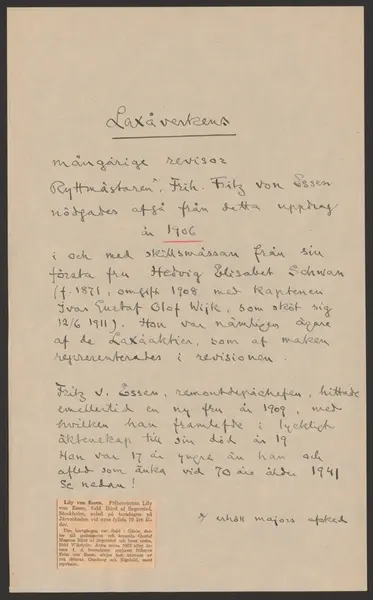 Laxåverkens
mångårige revisor
Ryttmästaren⁺, Frih. Fritz von Essen
nödgades afgå från detta uppdrag
år 1906
i och med skilsmässan från sin
första fru Hedvig Elisabet Schwan
(f. 1871, omgift 1908 med kaptenen
Ivar Gustaf Olof Wijk, som sköt sig
12/6 1911). Hon var nämligen ägare
af de Laxåaktier, som af maken
representerades i revisionen.
Fritz v. Essen, remontdepåchefen, hittade
emellertid en ny fru år 1909, med
hvilken han framlefde i lyckligt
äktenskap till sin död år 19
Hon var 17 år yngre än han och
afled som änka vid 70 års ålder 1941
Se nedan!
Lily von Essen. Friherrinnan Lily
von Essen, född Bürd af Segerstad,
Stockholm, avled på torsdagen på
vid nyss fyllda 70 års ål-
der.
erhöll majors afsked